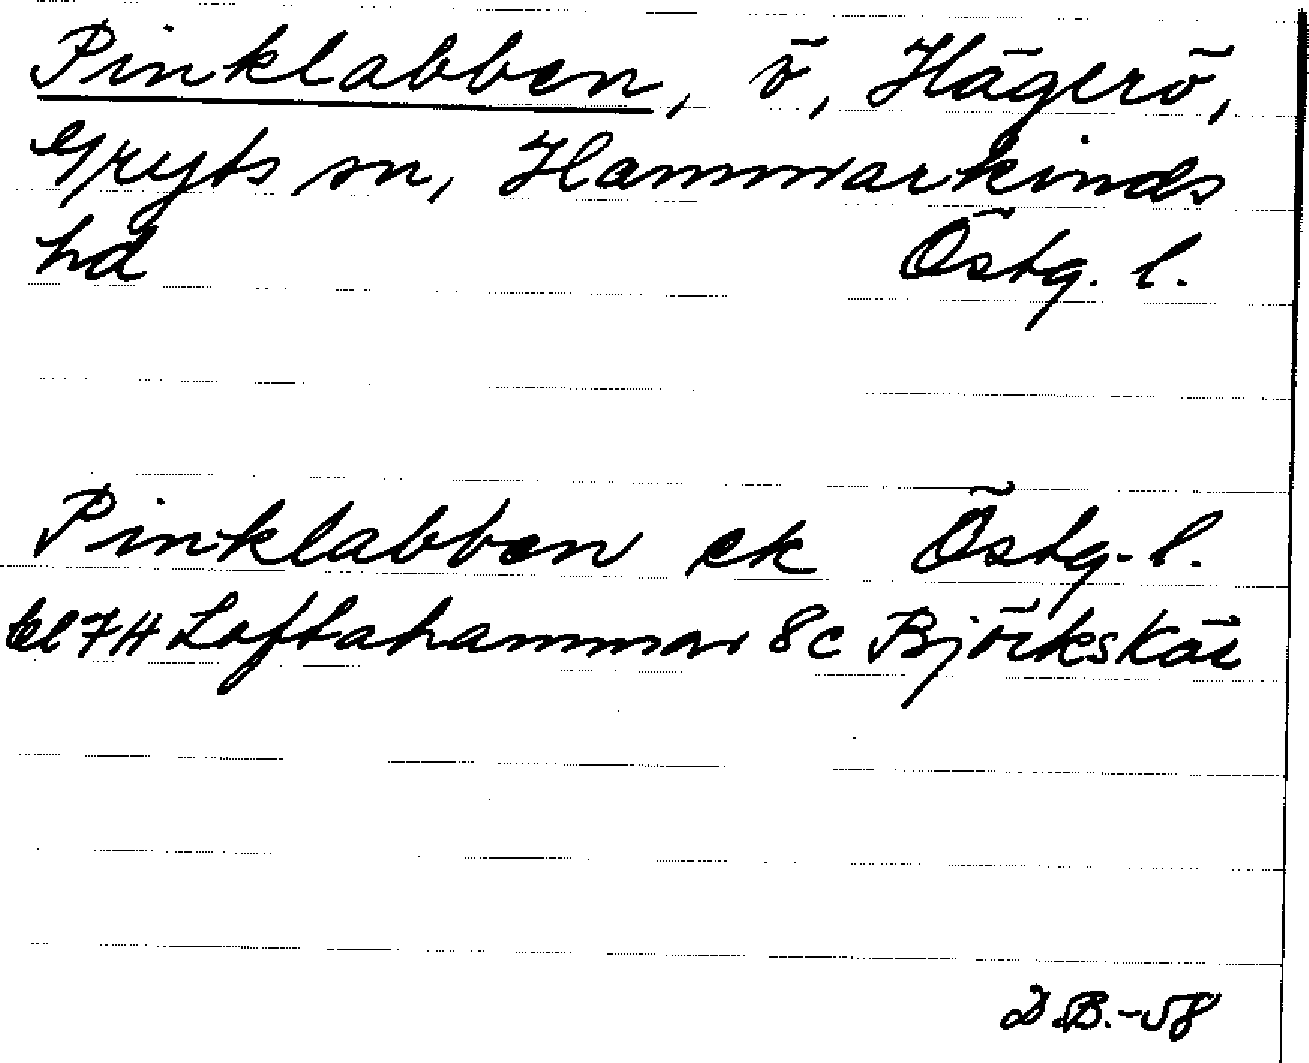 Pinklabben, ö, Hägerö,
Gryts sn, Hammarkinds
hd Östg. l.
Pinklabben ek Östg. l.
bl 7H Loftahammar 8c Björkskär
D.B.-58